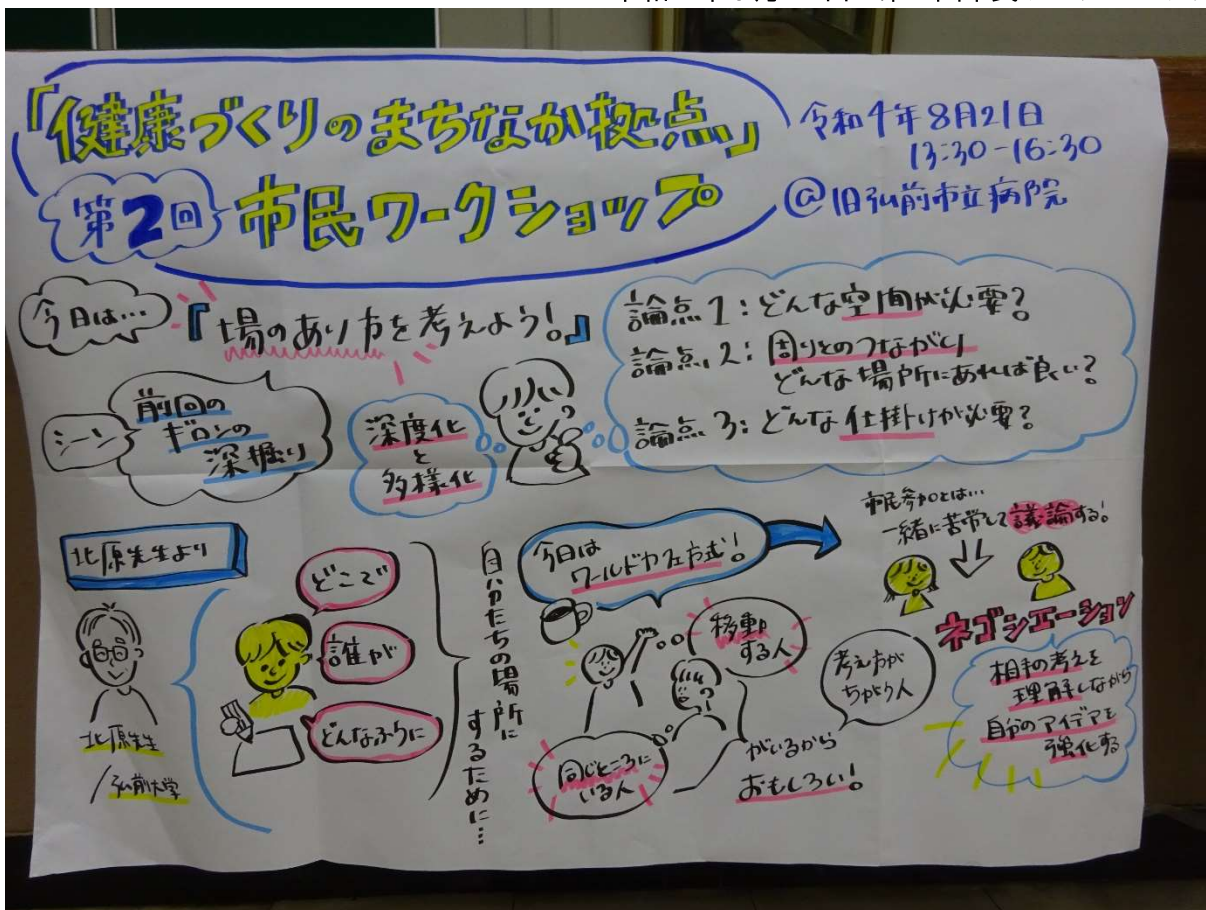 「健康づくりのまちなか拠点」
第2回 市民ワークショップ
令和4年8月21日
13:30-16:30
@旧弘前市立病院
今日は…
『場のあり方を考えよう!』
論点1:どんな空間が必要?
論点2:周りとのつながり
どんな場所にあれば良い?
論点3:どんな仕掛けが必要?
シーン
前回の
ギロンの
深掘り
深度化
と
多様化
北原先生より
北原先生
/弘前大学
どこで
誰が
どんなふうに
自分たちの場所に
するために…
今日は
ワールドカフェ方式!
移動
する人
同じところに
いる人
考え方が
ちがう人
がいるから
おもしろい!
市民参加とは…
一緒に苦労して議論する!
ネゴシエーション
相手の考えを
理解しながら
自分のアイデアを
強化する